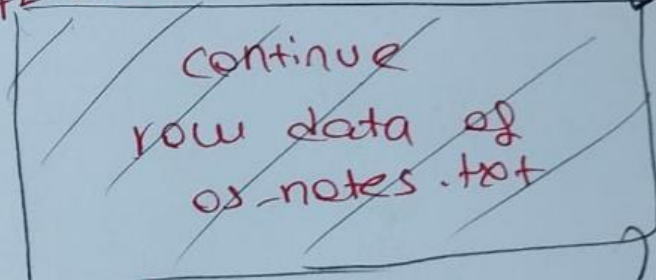 continue
row data of
os-notes.txt